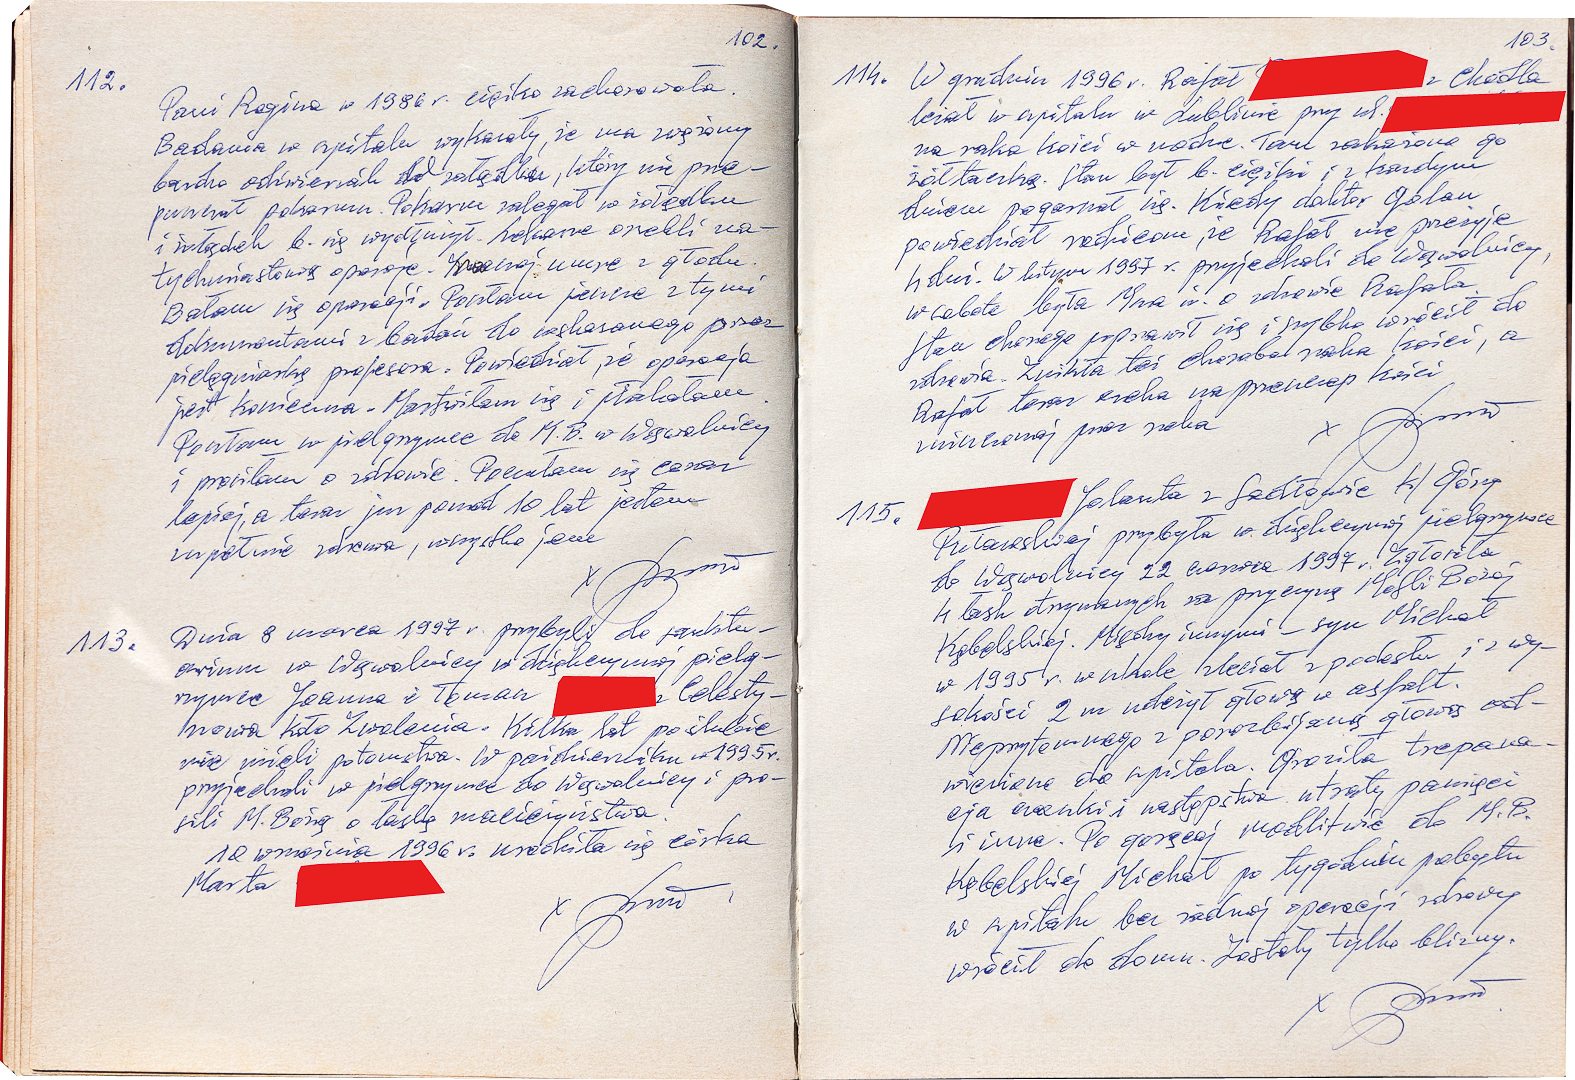 102.
112.
Pani Regina w 1986 r. ciężko zachorowała.
Badania w szpitalu wykazały, że ma zwężony
bardzo odźwiernik od żołądka, który nie prze-
puszczał pokarmu. Pokarm zalegał w żołądku
i żołądek b. się wydłużył. Lekarze orzekli na-
tychmiastową operację. Inaczej umrę z głodu.
Bałam się operacji. Poszłam jeszcze z tymi
dokumentami z badań do wskazanego przez
pielęgniarkę profesora. Powiedział, że operacja
jest konieczna. Martwiłam się i płakałam.
Poszłam w pielgrzymce do M.B. w Wąwolnicy
i prosiłam o zdrowie. Poczułam się coraz
lepiej, a teraz już ponad 10 lat jestem
zupełnie zdrowa, wszystko jem
x
113.
Dnia 8 marca 1997 r. przybyli do sanktu-
arium w Wąwolnicy w dziękczynnej pielg-
rzymce Joanna i Tomasz z Celesty-
nowa koło Zwolenia. Kilka lat po ślubie
nie mieli potomstwa. W październiku w 1995 r.
przyjechali w pielgrzymce do Wąwolnicy i pro-
sili M. Bożą o łaskę macierzyństwa.
10 września 1996 r. urodziła się córka
Marta
x
103.
114. W grudniu 1996 r. Rafał z Chodla
leżał w szpitalu w Lublinie przy ul.
na raka kości w nodze. Tam zakażono go
żółtaczką. Stan był b. ciężki i z każdym
dniem pogarszał się. Kiedy doktor Golan
powiedział rodzicom, że Rafał nie przeżyje
4 dni. W lutym 1997 r. przyjechali do Wąwolnicy,
w sobotę była Msza św. o zdrowie Rafała.
Stan chorego poprawił się i szybko wrócił do
zdrowia. Znikła też choroba raka kości, a
Rafał teraz czeka na przeszczep kości
zniszczonej przez raka
x
115. Jolanta z Sadłowic k/ Góry
Puławskiej przybyła w dziękczynnej pielgrzymce
do Wąwolnicy 22 czerwca 1997 r. Zgłosiła
4 łask otrzymanych za przyczyną Matki Bożej
Kębelskiej. Między innymi – syn Michał
w 1995 r. w szkole zleciał z podestu i z wy-
sokości 2 m uderzył głową w asfalt.
Nieprzytomnego z porozbijaną głową od-
wieziono do szpitala. Groziła trepana-
cja czaszki i następstwa utraty pamięci
i inne. Po gorącej modlitwie do M.B.
Kębelskiej Michał po tygodniu pobytu
w szpitalu bez żadnej operacji zdrowy
wrócił do domu. Zostały tylko blizny.
x